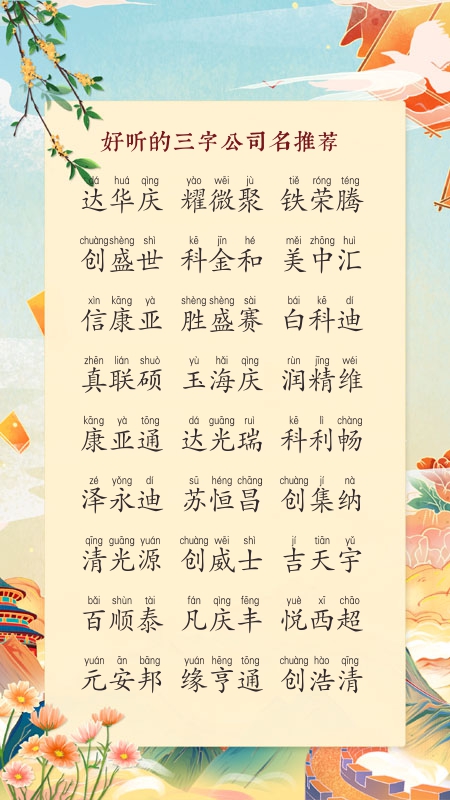 好听的三字公司名推荐
dá huá qìng yào wēi jù tiě róng téng
达华庆 耀微聚 铁荣腾
chuàng shèng shì kē jīn hé měi zhōng huì
创盛世 科金和 美中汇
xìn kāng yà shèng shèng sài bái kē dí
信康亚 胜盛赛 白科迪
zhēn lián shuò yù hǎi qìng rùn jīng wéi
真联硕 玉海庆 润精维
kāng yà tōng dá guāng ruì kē lì chàng
康亚通 达光瑞 科利畅
zé yǒng dí sū héng chāng chuàng jí nà
泽永迪 苏恒昌 创集纳
qīng guāng yuán chuàng wēi shì jí tiān yǔ
清光源 创威士 吉天宇
bǎi shùn tài fán qìng fēng yuè xī chāo
百顺泰 凡庆丰 悦西超
yuán ān bāng yuán hēng tōng chuàng hào qīng
元安邦 缘亨通 创浩清